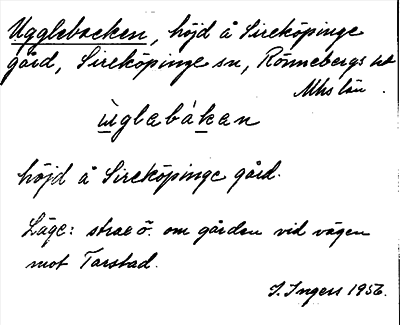 Ugglebacken, höjd å Sireköpinge
gård, Sireköpinge sn, Rönnebergs hd
Mhs län.
ùglebákan
höjd å Sireköpinge gård.
Läge: strax ö. om gården vid vägen
mot Tarstad.
I. Ingers 1956.